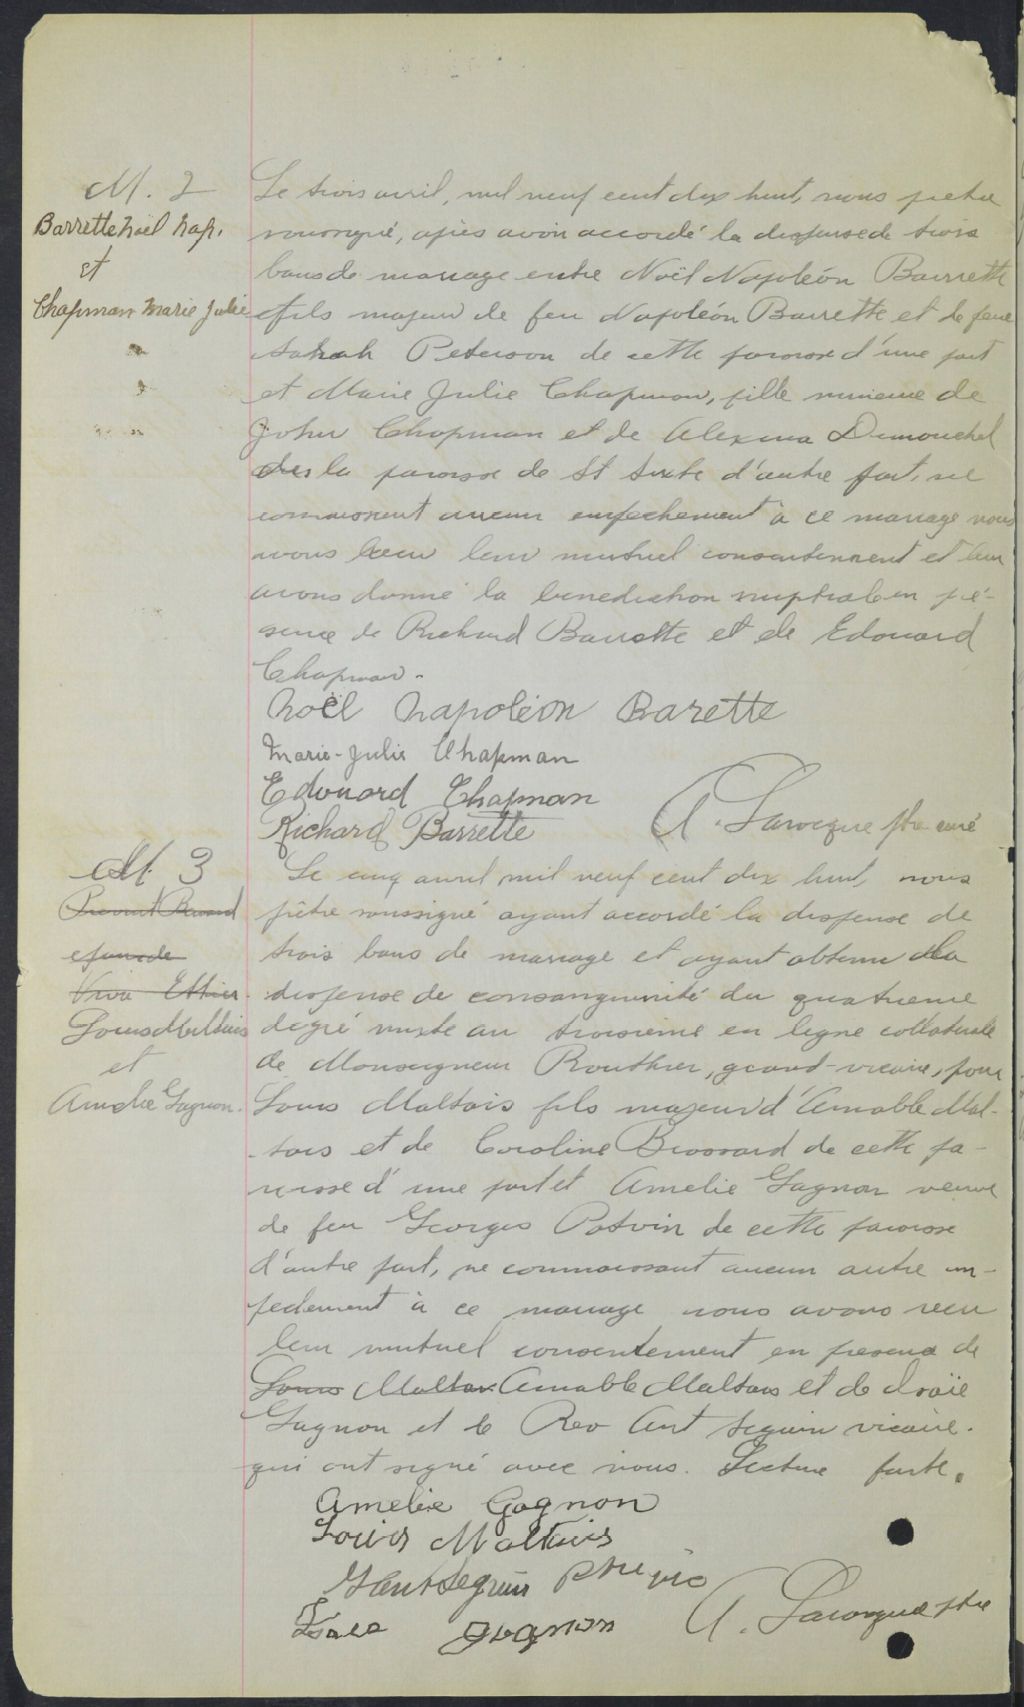 M. 2
Barrette Noël Nap.
et
Chapman Marie Julie
Le trois avril, mil neuf cent dix huit, nous prêtre
soussigné, après avoir accordé la dispense de trois
bans de mariage entre Noël Napoléon Barrette
fils majeur de feu Napoléon Barrette et de feue
Sahah Peterson de cette paroisse d'une part
et Marie Julie Chapman, fille mineure de
John Chapman et de Alexina Dumouchel
de la paroisse de St Sixte d'autre part, ne
connaissant aucun empêchement à ce mariage nous
avons reçu leur mutuel consentement et leur
avons donné la bénédiction nuptiale en pré-
sence de Richard Barrette et de Edouard
Chapman.
Noël Napoléon Barette
Marie-Julie Chapman
Edouard Chapman
Richard Barrette A. Larocque ptre curé
M 3
Viva Ethier
Louis Maltais
et
Amelie Gagnon.
Le cinq avril, mil neuf cent dix huit, nous
prêtre soussigné ayant accordé la dispense de
trois bans de mariage et ayant obtenu la
dispense de consanguinité du quatrieme
degré mixte au troisieme en ligne collaterale
de Monseigneur Routhier, grand-vicaire, pour
Louis Maltais fils majeur d'Amable Mal-
tais et de Caroline Brossard de cette pa-
roisse d'une part et Amelie Gagnon veuve
de feu Georges Potvin de cette paroisse
d'autre part, ne connaissant aucun autre em-
pechement à ce mariage nous avons reçu
leur mutuel consentement en presence de
Louis Maltais Amable Maltais et de Isaïe
Gagnon et le Rev Ant Seguin vicaire.
qui ont signé avec nous. Lecture faite.
Amelie Gagnon
Louis Maltais
Ant Seguin ptre vic
Gagnon A. Larocque ptre